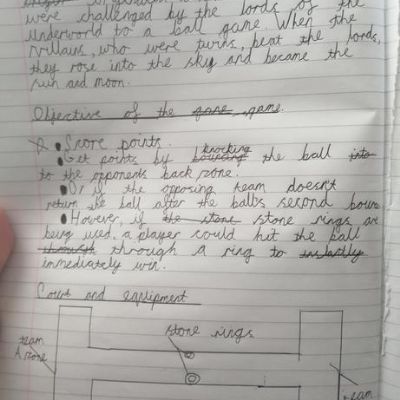 were challenged by the lords of the
underworld to a ball game. When the
villains, who were twins, beat the lords,
they rose into the sky and became the
sun and moon.
Objective of the game game.
Score points.
Get points by bouncing knocking the ball into
to the opponents back zone.
Or if the opposing team doesn't
return the ball after the balls second boun
However, if the stone stone rings are
being used, a player could hit the ball
through through a ring to instantly
immediately win.
Court and equipment
stone rings
team
A zone
team